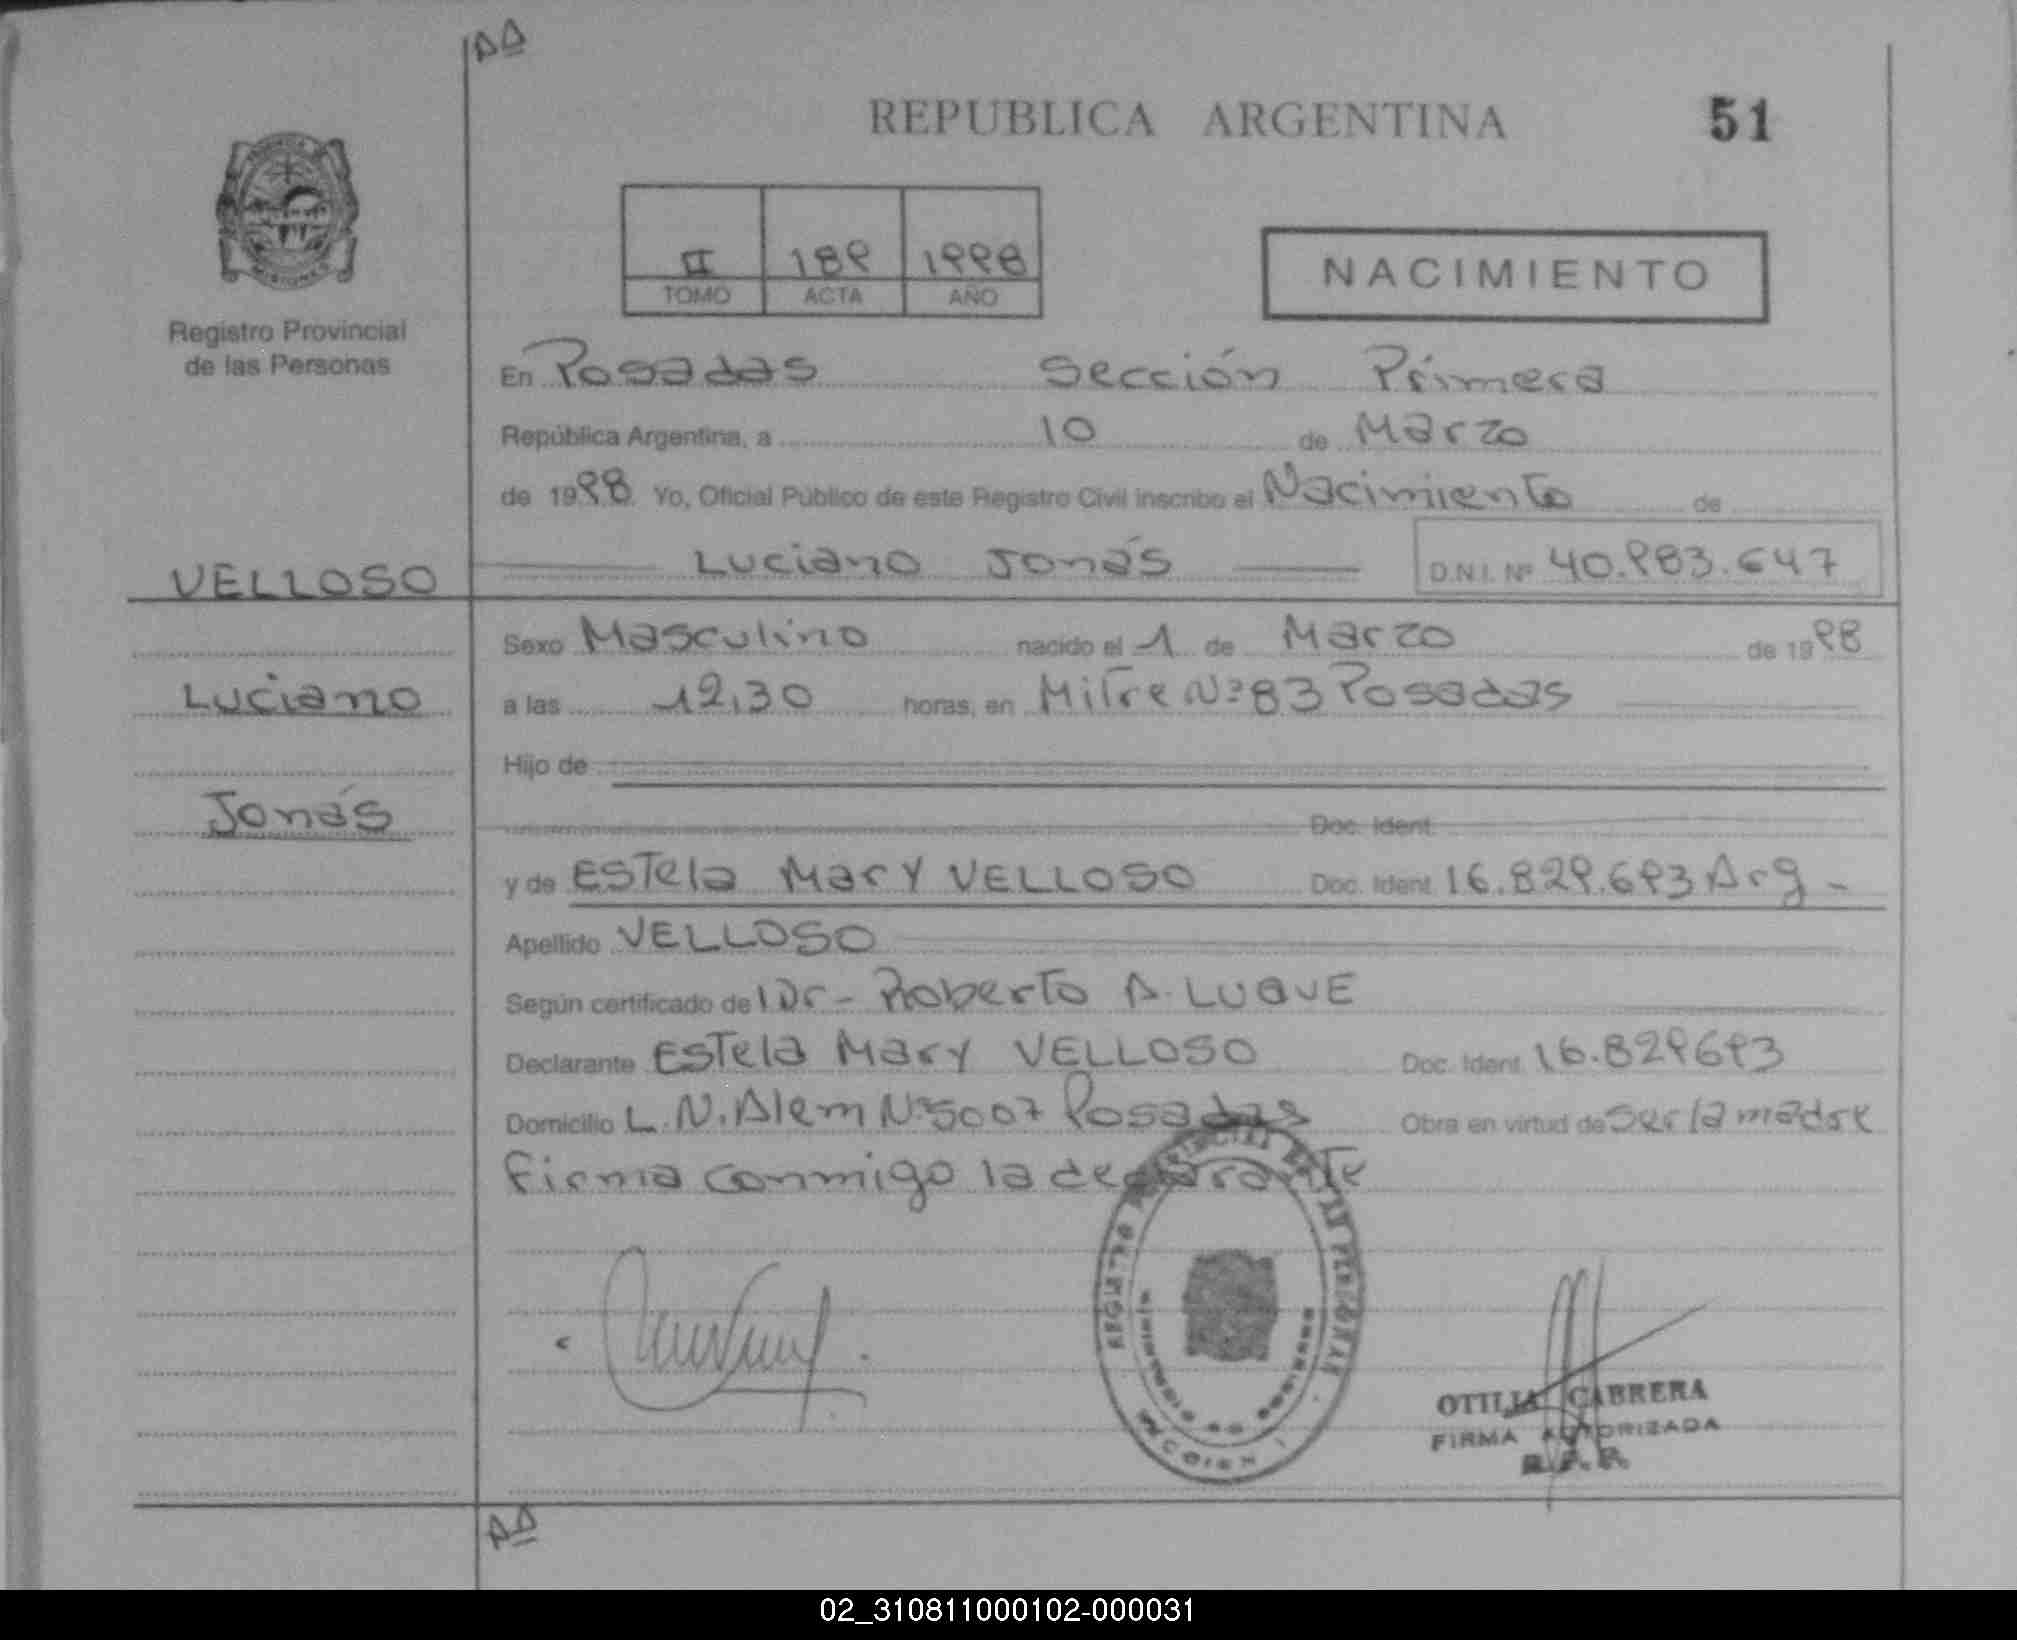 AA
REPUBLICA ARGENTINA 51
II 189 1998
TOMO ACTA AÑO
NACIMIENTO
MISIONES
Registro Provincial
de las Personas
En Posadas Sección Primera
República Argentina, a 10 de Marzo
de 1998. Yo, Oficial Público de este Registro Civil inscribo el Nacimiento de
VELLOSO Luciano Jonás D.N.I. Nº 40.983.647
Sexo Masculino nacido el 1 de Marzo de 1998
Luciano a las 12,30 horas, en Mitre Nº 83 Posadas
Hijo de
Jonás Doc. Ident.
y de Estela Mary VELLOSO Doc. Ident. 16.829.693 Arg -
Apellido VELLOSO
Según certificado de Dr - Roberto A. LUQUE
Declarante Estela Mary VELLOSO Doc. Ident. 16.829693
Domicilio L. N. Alem Nº 5007 Posadas Obra en virtud de ser la madre
Firma conmigo la declarante
REGISTRO PROVINCIAL DE LAS PERSONAS
OTILIA CABRERA
FIRMA AUTORIZADA
AA
02_310811000102-000031